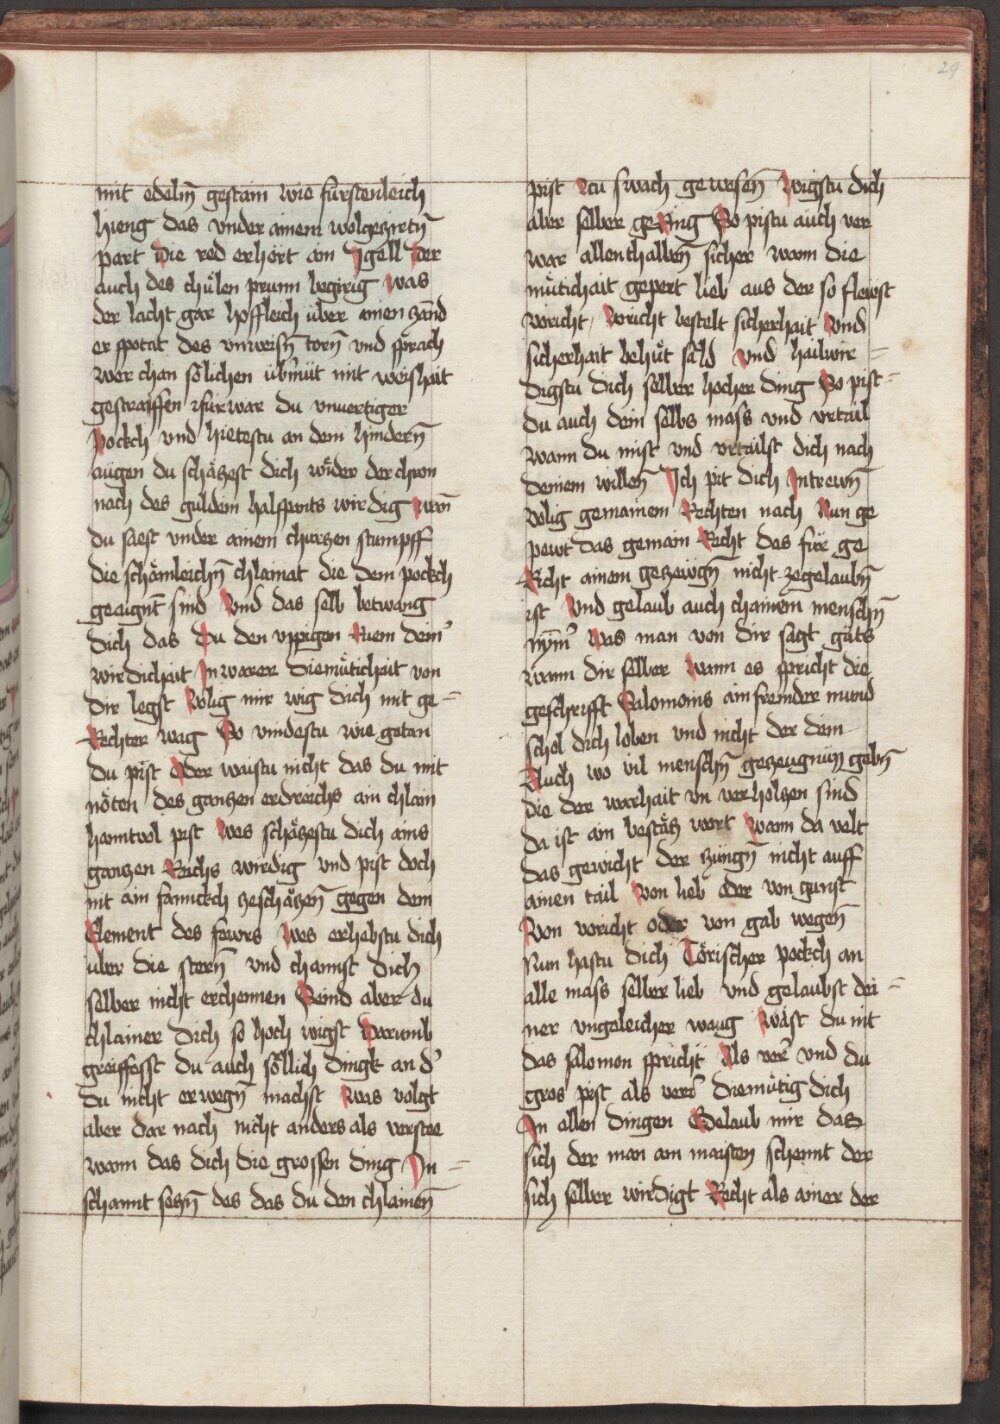 29
mit edelm̄ gestain wie fürstenleich
hieng das vnder ainem wolgezirtn̄
part Die red erhört ain Igell Der
auch des chülen prunn begirig was
der lacht gar hoffleich über ainen zand
er spotat des vnweisn̄ torn̄ vnd sprach
wer chan sölichen übmüt mit weishait
gestraiffen fürwar du vnuertiger
pockch vnd hietestu an dem hindern̄
augen du schäzest dich wider der chron
nach des guldein halspants wirdig wan̄
du saest vnder ainem churzen stumpff
die schämleichn̄ chlainat die dem pockch
geaignt sind Vnd das selb betwang
dich das Du den üppigen Ruem deinˀ
wirdichait In warer diemütichait von
dir legst Volig mir wig dich mit ge=
Rechter wag So vindestu wie getan
du pist Oder waistu nicht das du mit
nöten des ganzen erdreichs ain chlain
hanntvol pist Wes schäzestu dich ains
ganzen Reichs wirdig vnd pist doch
nit ain fannckch zeschäzen̄ gegen dem
Element des fewrs Wes erhebstu dich
über die stern̄ vnd channst dich
selber nicht erchennen Seind aber du
chlainer dich so hoch wigst Warumb
greiffesst du auch söllich dingk an dˀ
du nicht erwegn̄ machst Was volgt
aber dar nach nicht anders als verstee
wann das dich die grossen ding In=
schannt sezn̄ des das du den chlainen̄
pist zu swach gewesen̄ Wigstu dich
aber selber geRing So pistu auch ver
war allenthalben̄ sicher wann die
mütichait gepert lieb aus der so fleüst
voricht / Voricht bestelt sicherhait Vnd
sicherhait behüt säld Vnd hailwir=
digstu dich selber hocher ding So pist=
du auch dein selbs mass vnd vrtail
wann du mist vnd vrtailst dich nach
deinem willen̄ Ich pit dich Intrewn̄
volig gemainem Rechten nach Nun ge
pewt das gemain Recht das für ge
Richt ainem gezewgn̄ nicht zegelaubn̄
ist Vnd gelaub auch chainem menschn̄
nym̄ˀ Was man von dir sagt güts
wann dir selber Wann es spricht die
geschrifft Salomonis ain frembder mund
schol dich loben vnd nicht der dein
Auch wo vil menschn̄ gezeugnuzz gebn̄
die der warhait vn verholzen sind
da ist ain bestäts wort Wann da velt
das gewicht der zungn̄ nicht auff
ainen tail Von lieb oder von gunst
Von voricht oder von gab wegen̄
Nun hastu dich Törischer pockch an
alle mass selber lieb vnd gelaubst dei=
ner vngeleicher waag Waist du nit
das salomon spricht Als verˀ vnd du
gros pist als verˀ diemütig dich
In allen dingen Gelaub mir das
sich der man am maisten schennt der
sich selber wirdigt Recht als ainer der